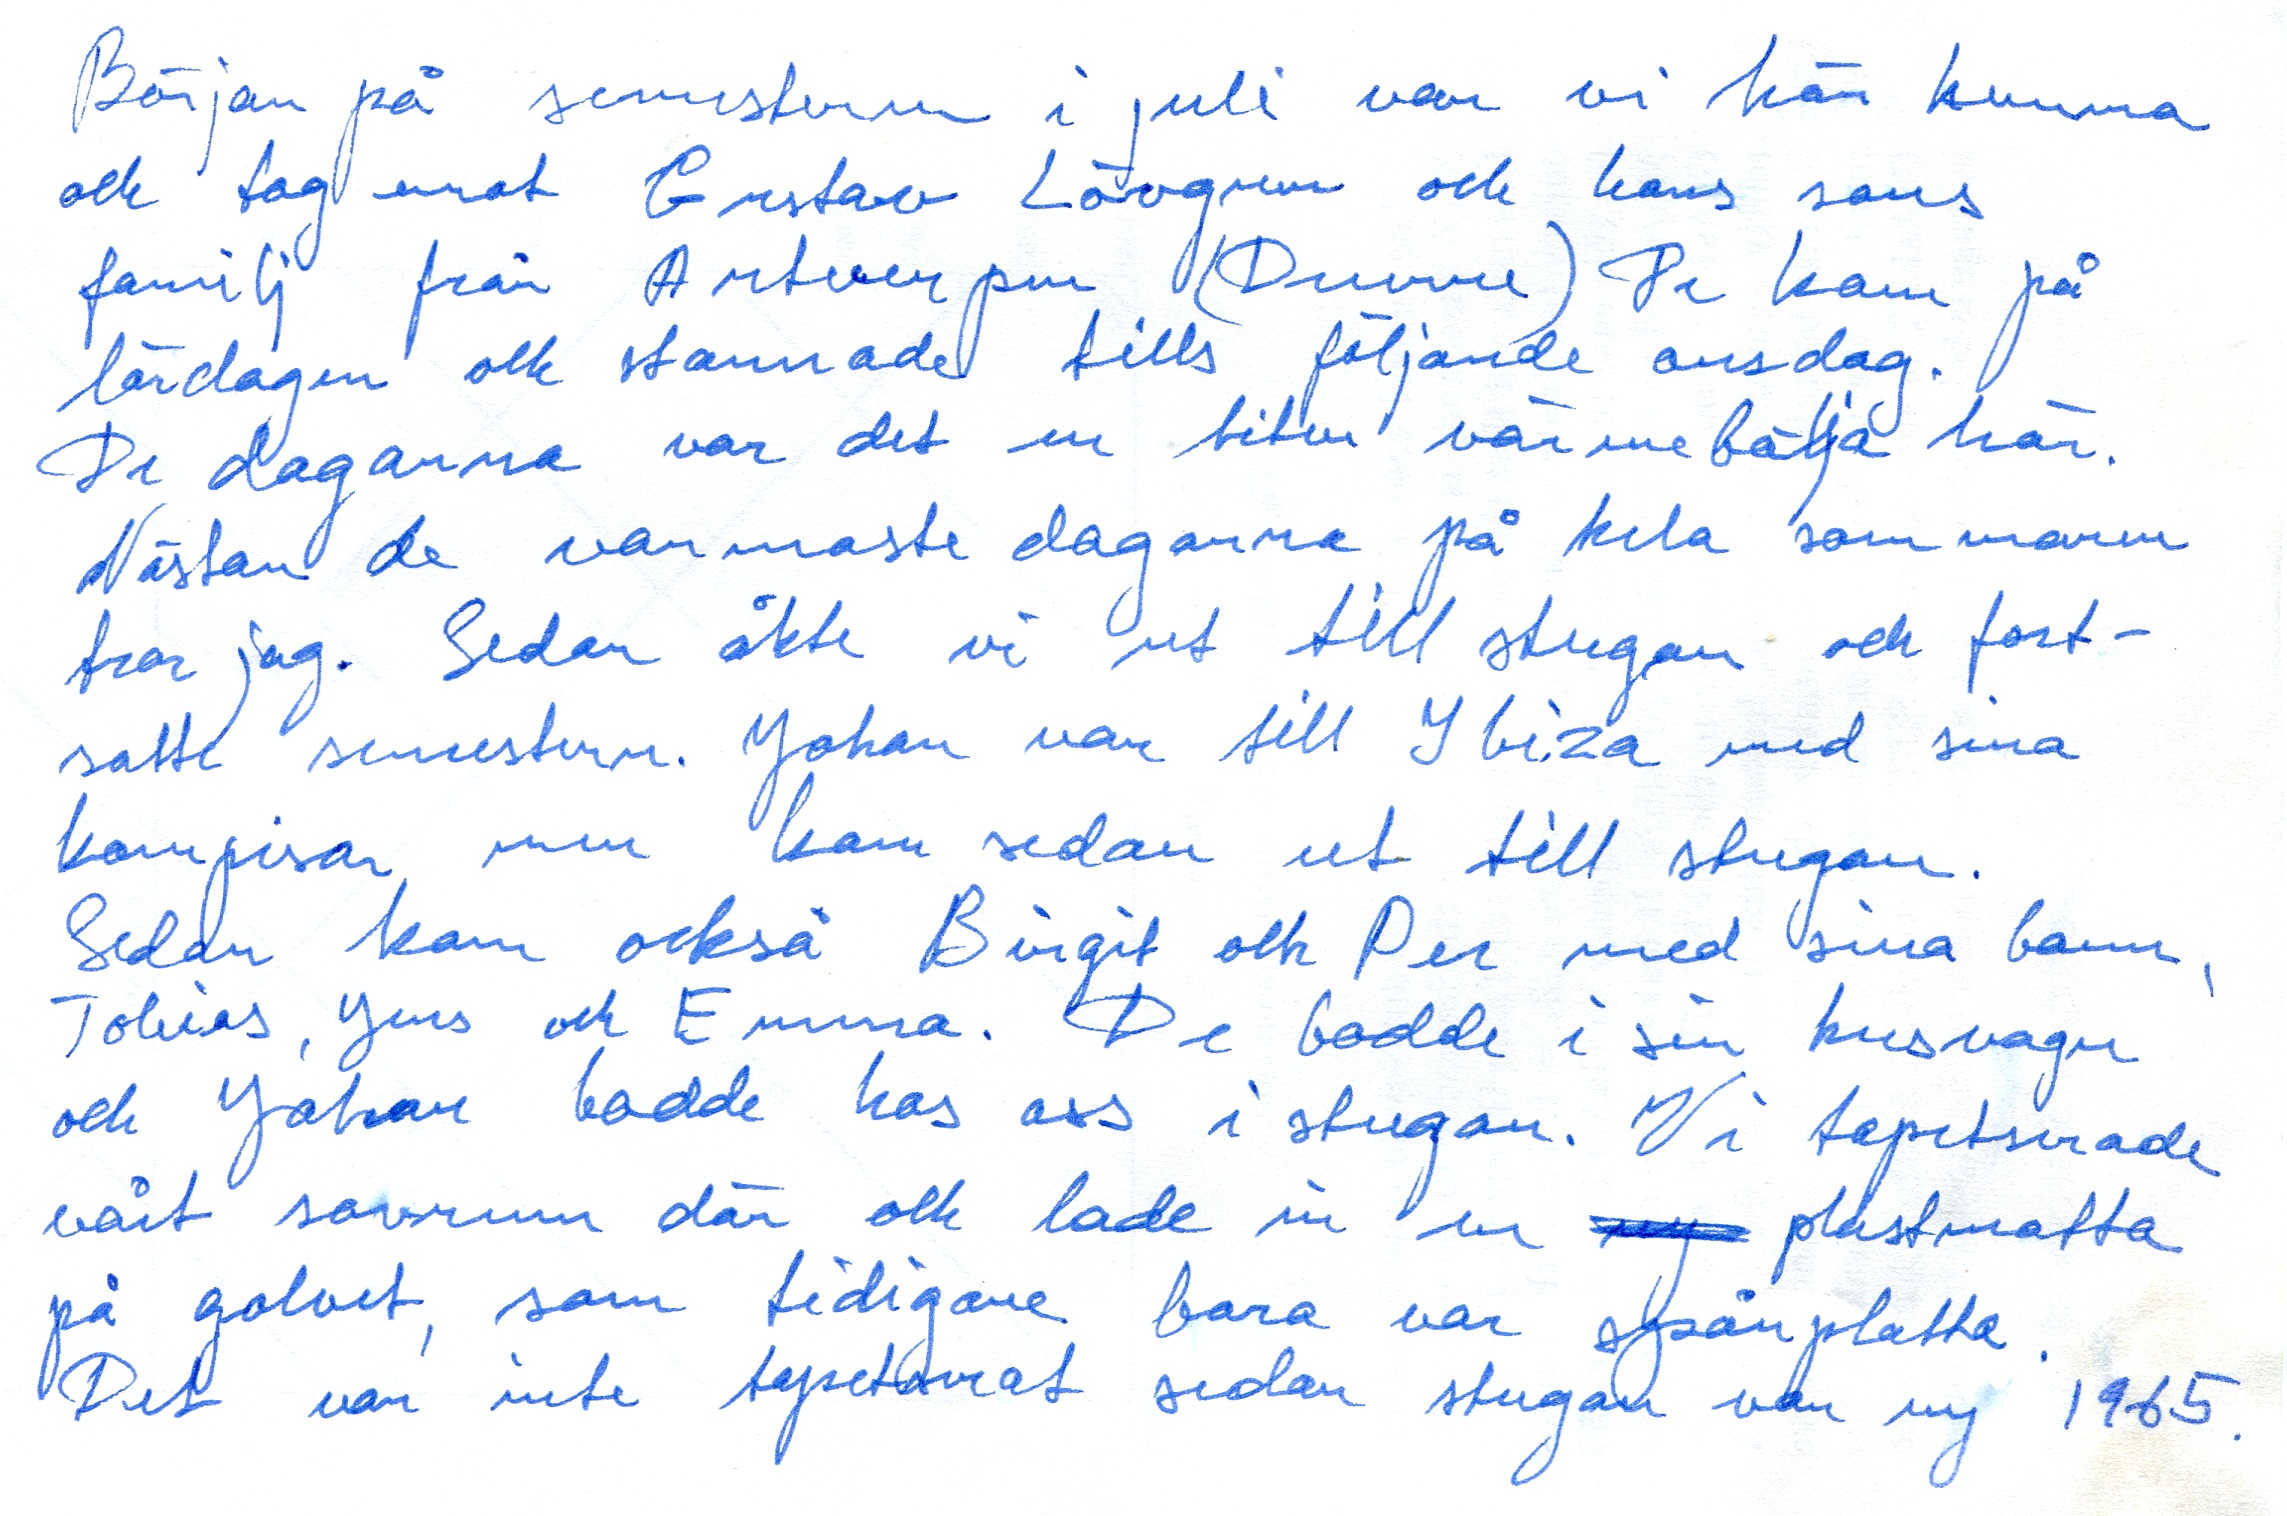 Början på semestern i juli var vi här hemma
och tog emot Gustav Lövgren och hans sons
familj från Antwerpen (Deurne) De kom på
lördagen och stannade tills följande onsdag.
De dagarna var det en liten värmebölja här.
Nästan de varmaste dagarna på hela sommaren
tror jag. Sedan åkte vi ut till stugan och fort-
satte semestern. Johan var till Ibiza med sina
kompisar men kom sedan ut till stugan.
Sedan kom också Birgit och Per med sina barn,
Tobias, Jens och Emma. De bodde i sin husvagn
och Johan bodde hos oss i stugan. Vi tapetserade
vårt sovrum där och lade in en ny plastmatta
på golvet, som tidigare bara var spånplatta.
Det var inte tapetserat sedan stugan var ny 1965.